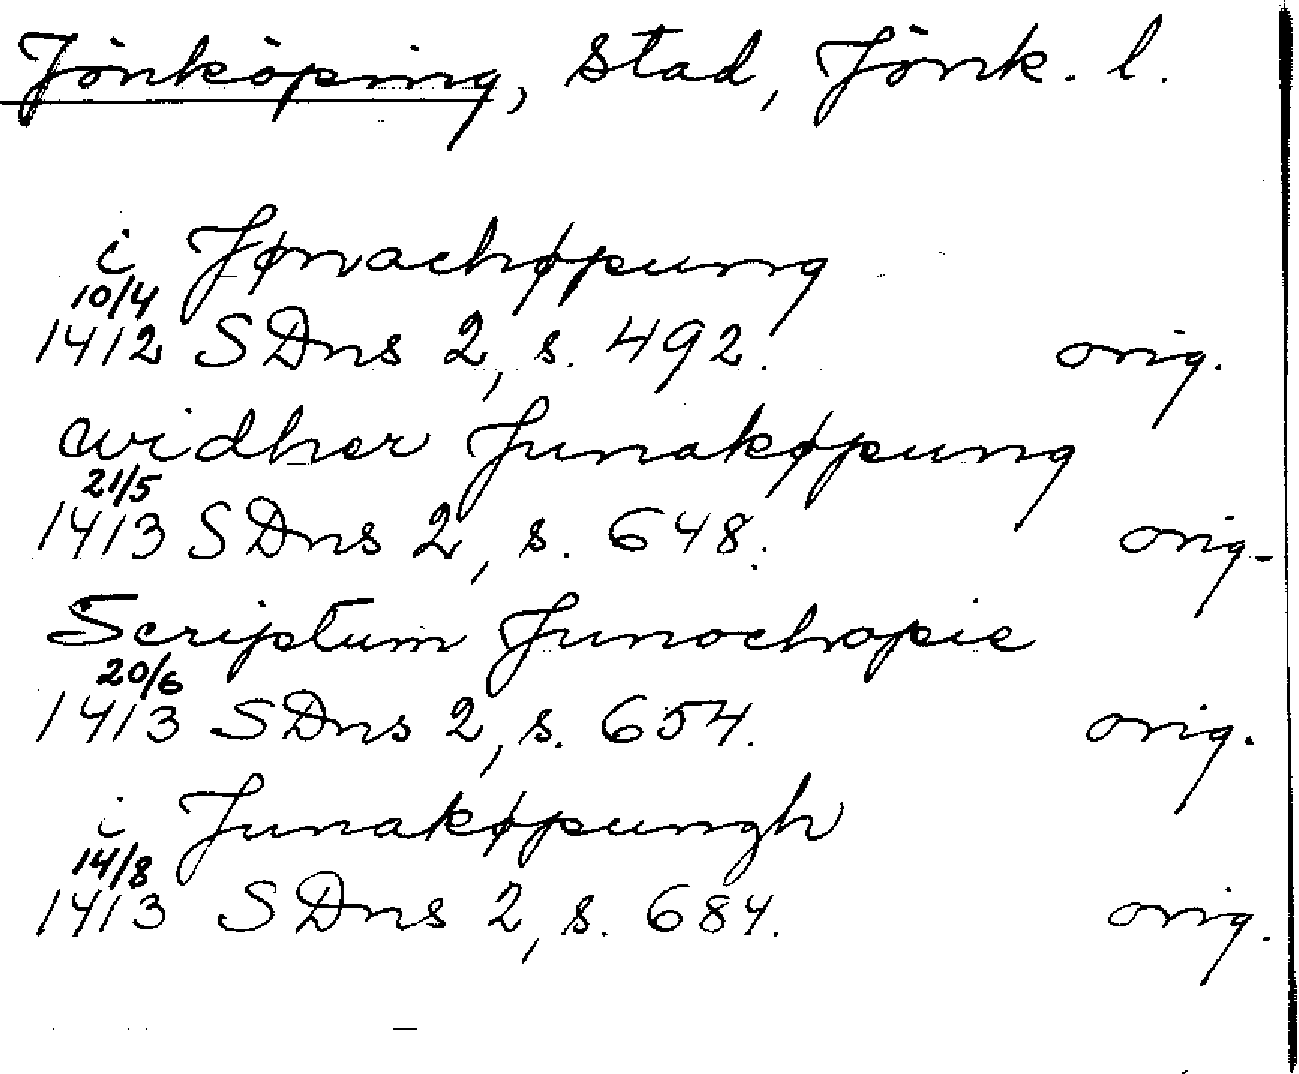 Jönköping, Stad, Jönk. l.
i Jønachøpung
10/4
1412 SDns 2, s. 492. orig.
widher Junakøpung
21/5
1413 SDns 2, s. 648. orig.
Scriptum Junochopie
20/6
1413 SDns 2, s. 654. orig.
i Junakøpungh
14/8
1413 SDns 2, s. 684. orig.